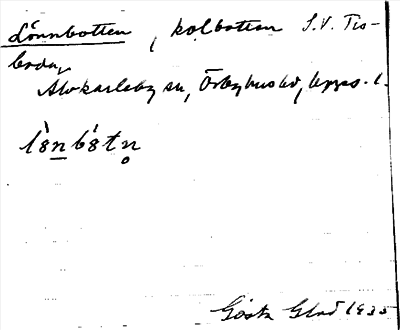 Lönnbotten, kolbotten S.V. Tis-
boda,
Älvkarleby sn, Örbyhus hd, Upps. l.
l8̀nb8́tn̥
Gösta Glad 1935